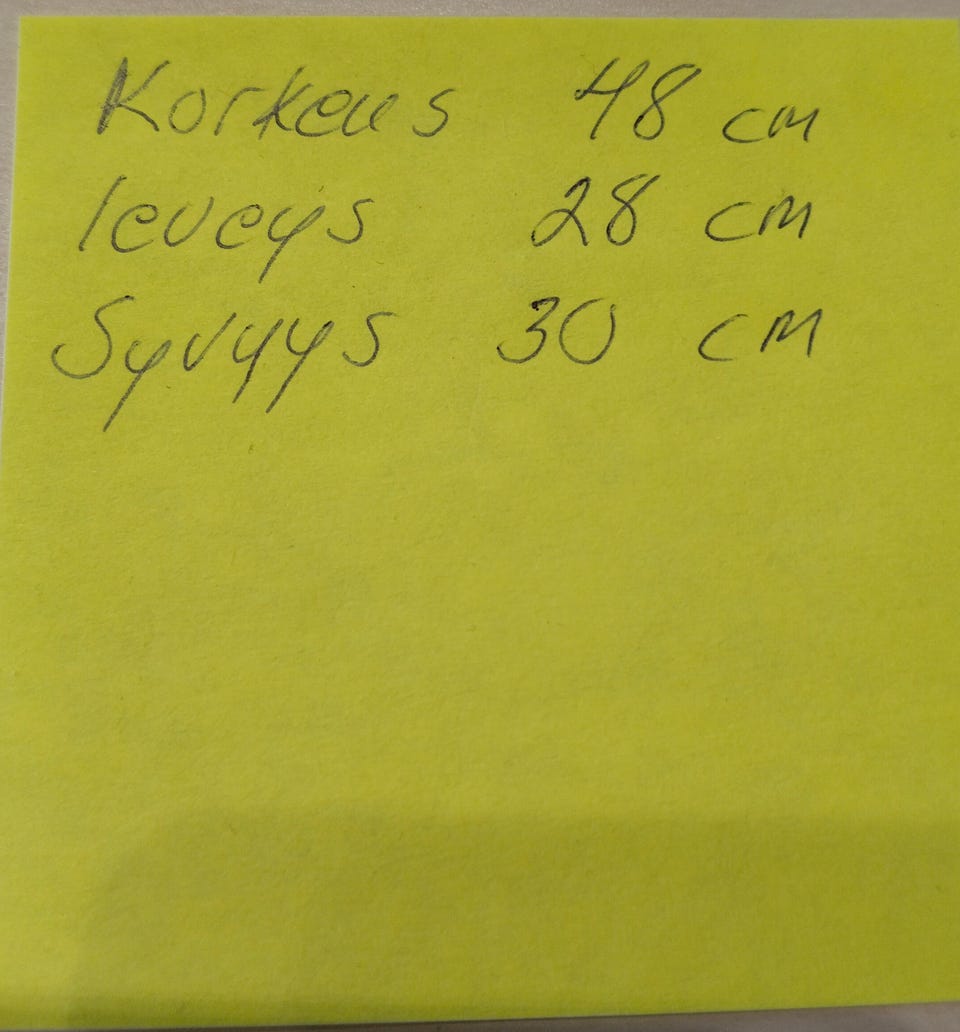 Korkeus 48 cm
leveys 28 cm
Syvyys 30 cm